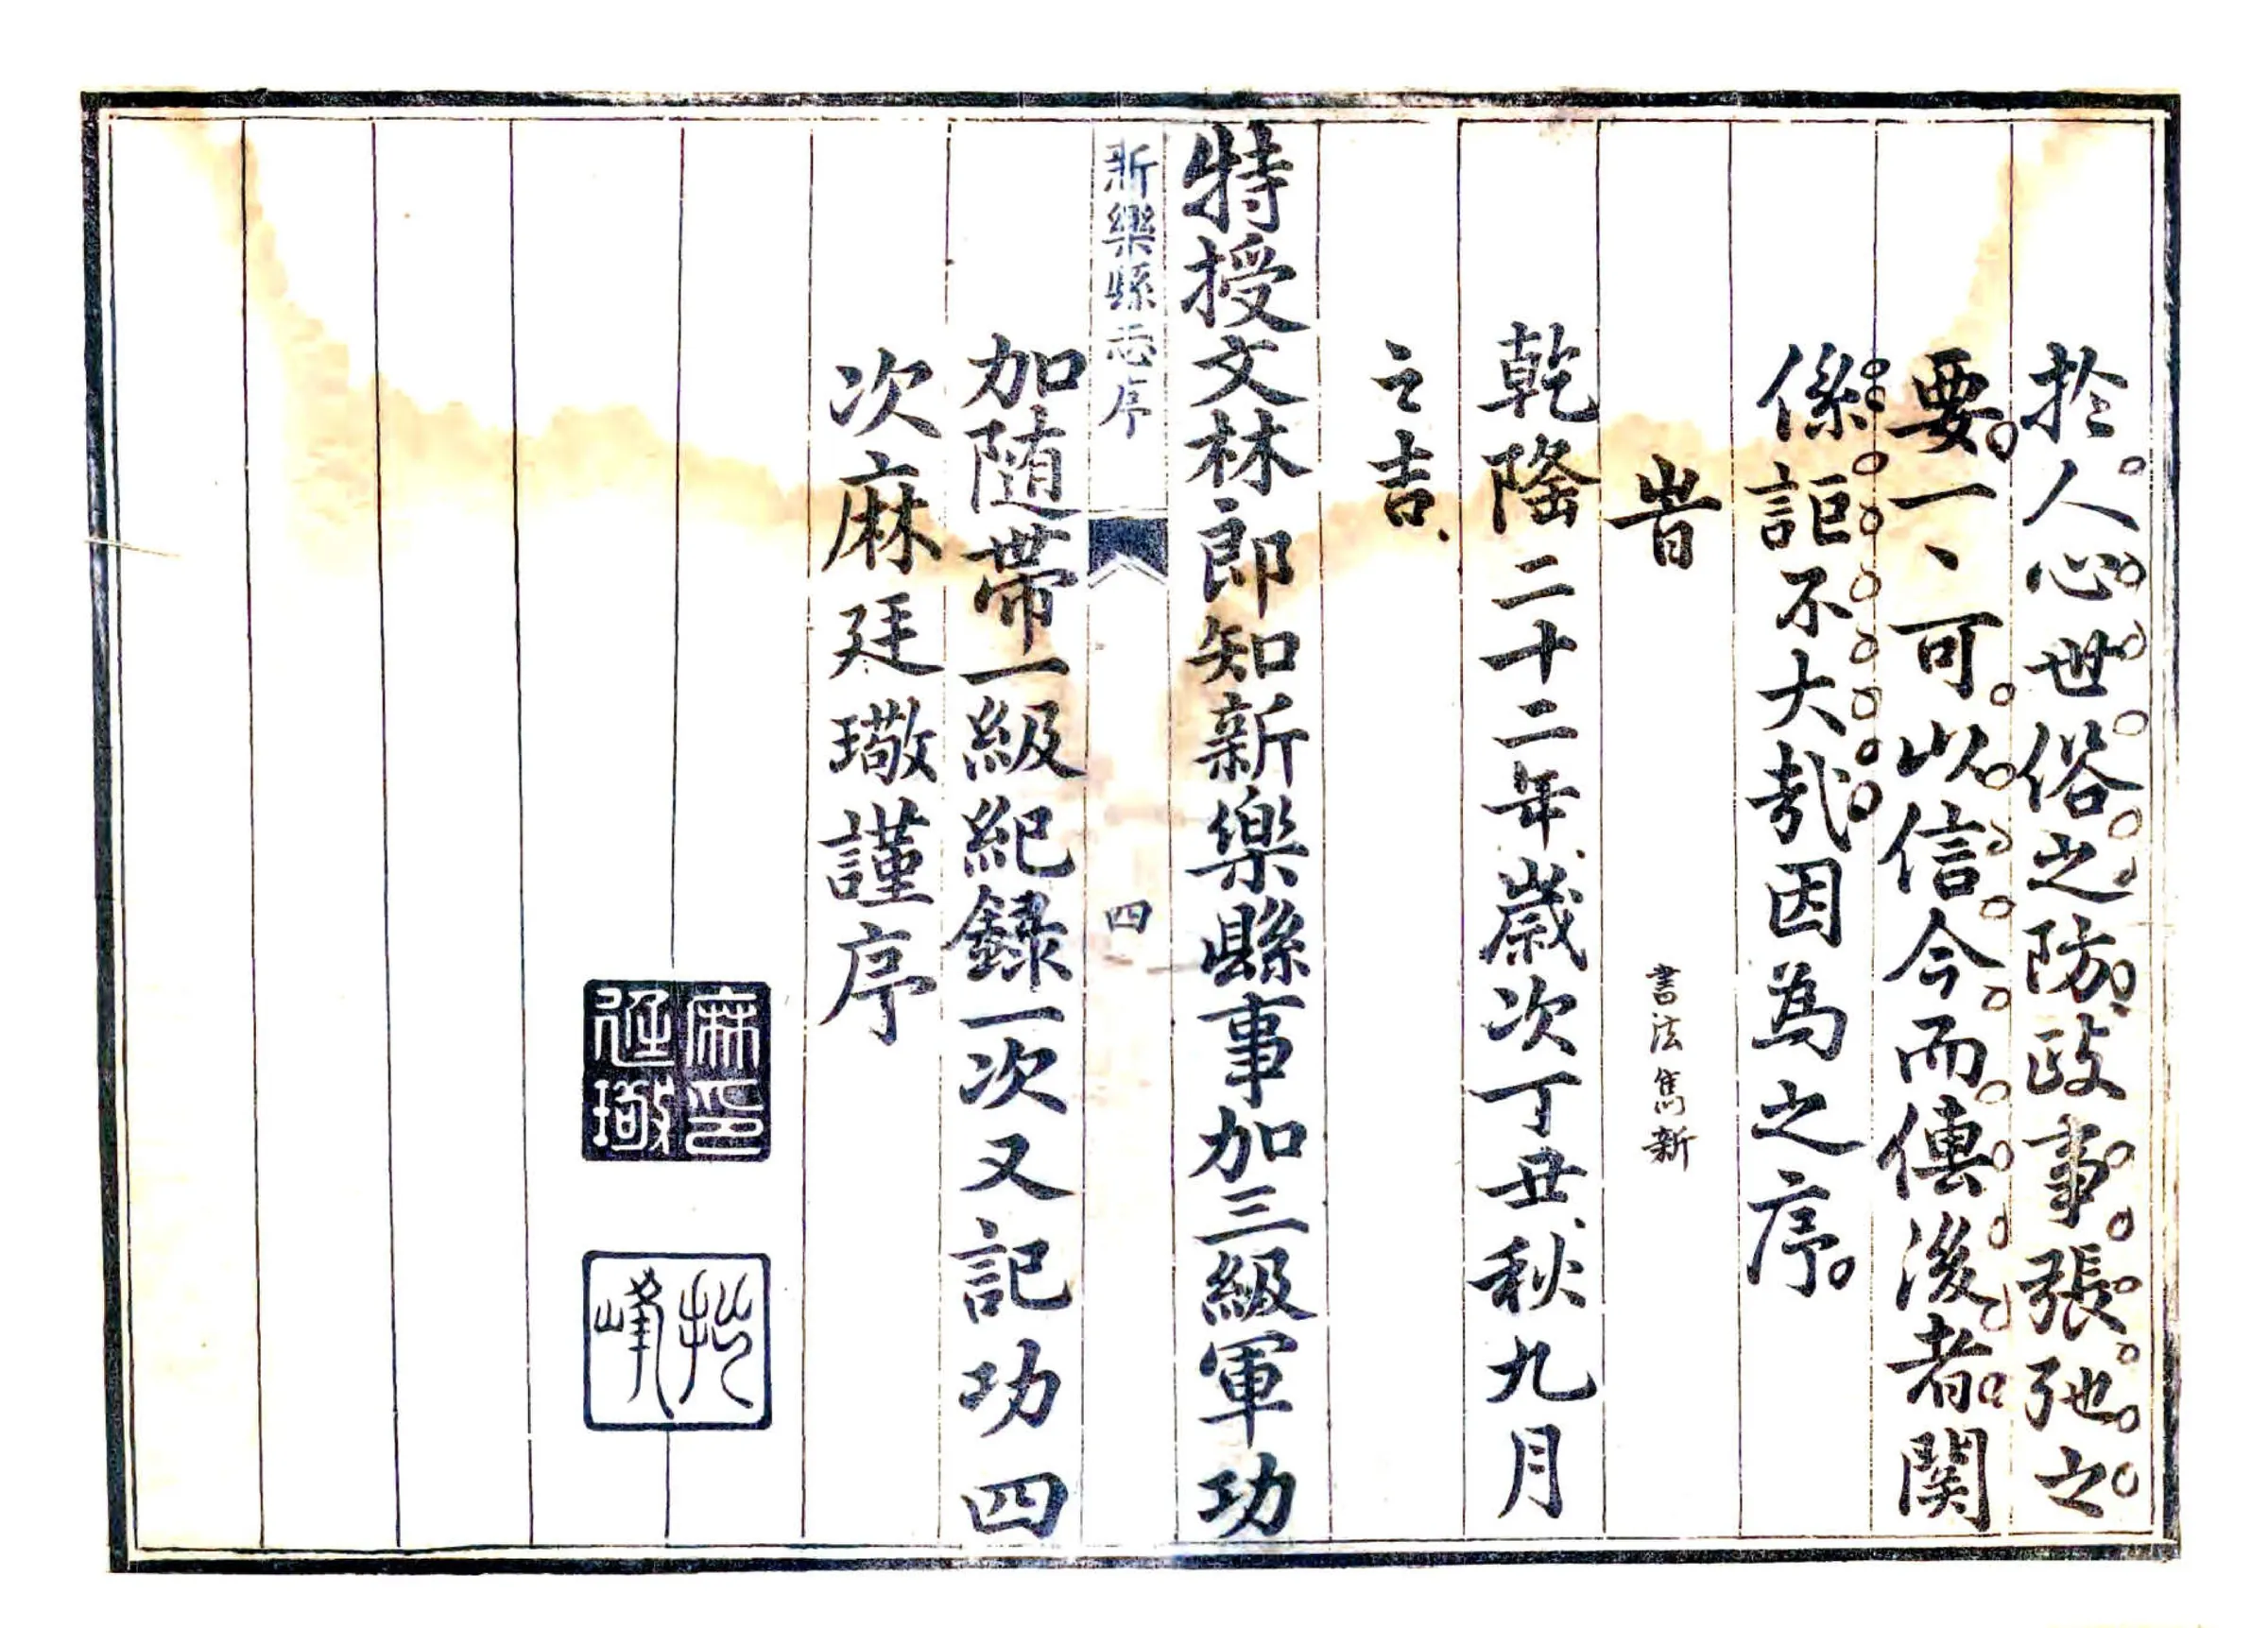 扵人心世俗之防政事張弛之
要一丶可以信今而傳後者関
係詎不大哉因為之序
旹
書法雋新
乾隆二十二年歲次丁丑秋九月
之吉
特授文林郎知新樂縣事加三級軍功
新樂縣志序
四
加隨帶一級紀録一次又記功四
次麻廷璥謹序
麻印廷璥
拙峰